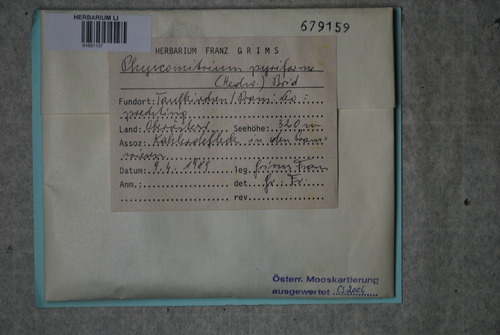 HERBARIUM LI
679159
HERBARIUM FRANZ GRIMS
Physcomitrium pyriforme
(Hedw.) Brid
Fundort: Taufkirchen / Pram:
Land: Oberösterr. Seehöhe: 320 m
Assoz: in den
wiesen
Datum: 9.4.1989 leg. Grims Franz
Anm.: det. Gr. Fr.
rev.
Österr. Mooskartierung
ausgewertet